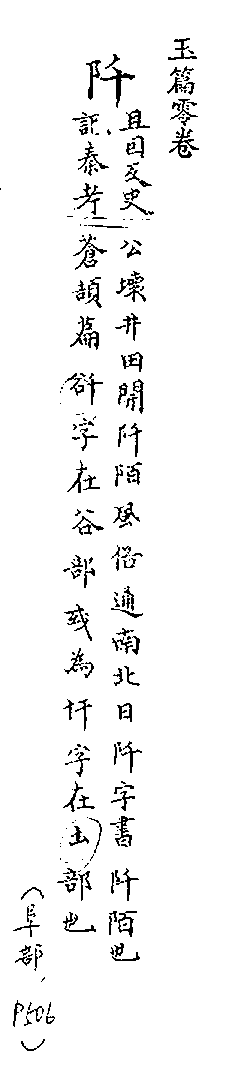 玉篇零卷
阡
且田反史公壞井田開阡陌風俗通南北日阡字書阡陌也
記、秦考蒼頡篇谸字在谷部或為圲字在土部也
（阜部，P506）